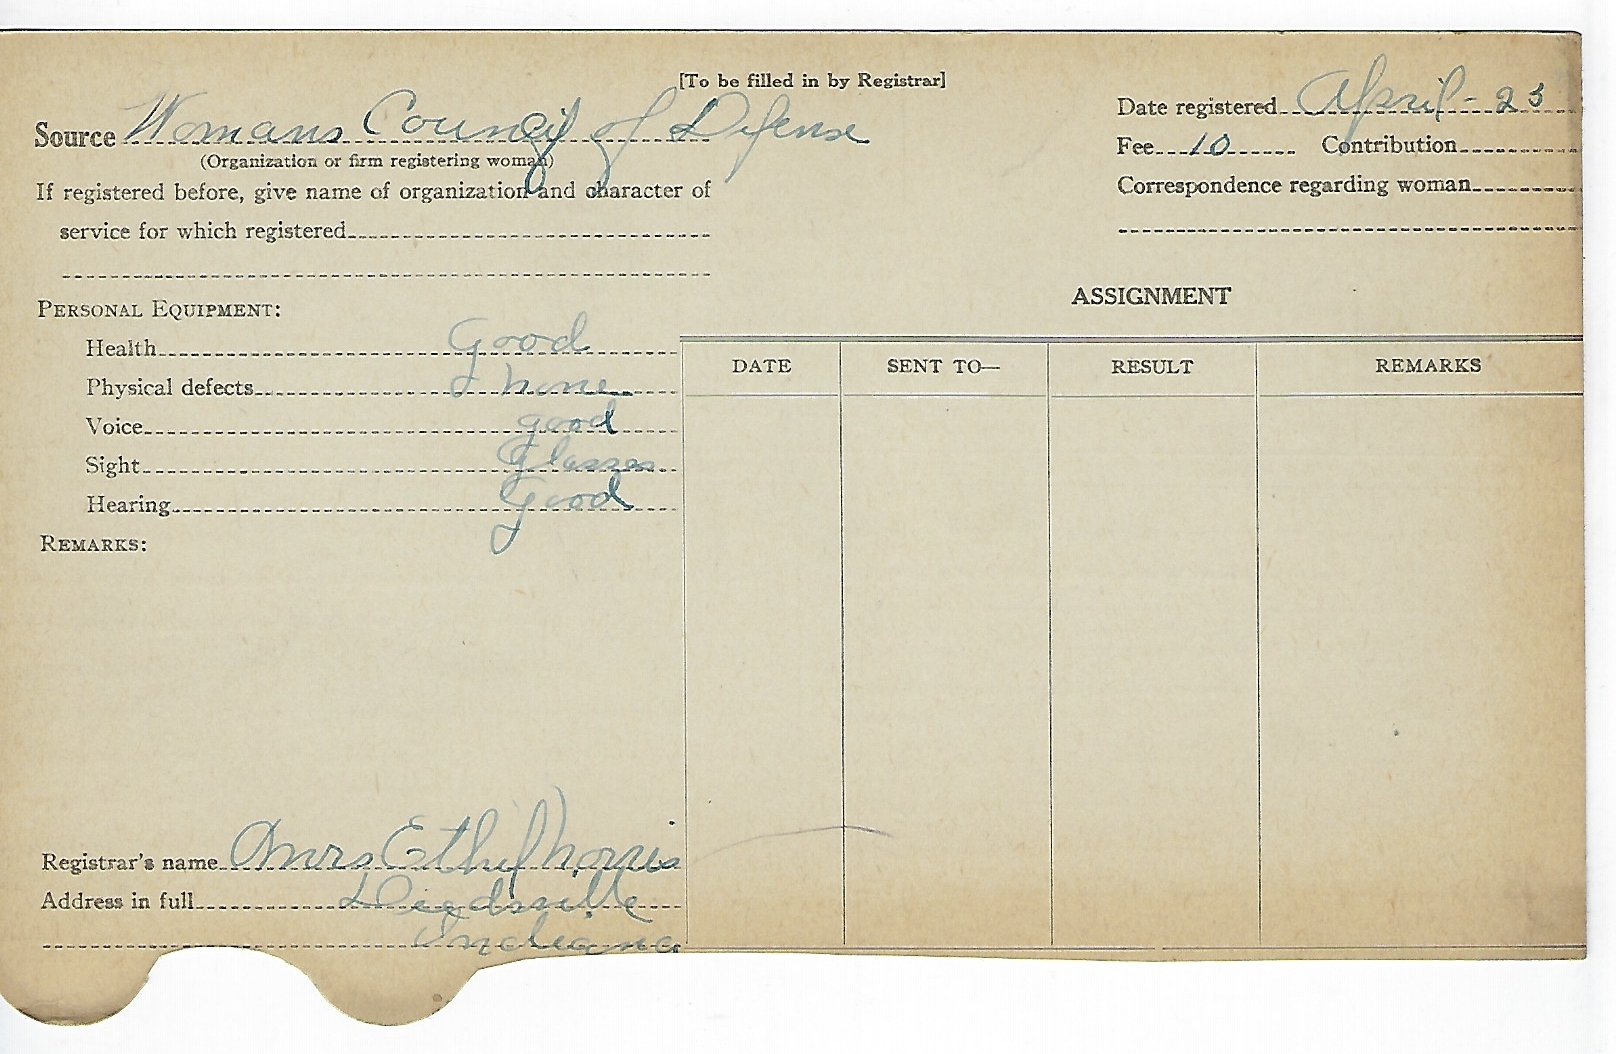 [To be filled in by Registrar]
Source Womans Council of Defense
(Organization or firm registering woman)
If registered before, give name of organization and character of
service for which registered
Date registered April - 23
Fee 10 Contribution
Correspondence regarding woman
PERSONAL EQUIPMENT:
Health Good
Physical defects none
Voice good
Sight Glasses
Hearing Good
REMARKS:
Registrar's name Mrs Ethel Norris
Address in full Deedsville
Indiana
ASSIGNMENT
DATE SENT TO— RESULT REMARKS